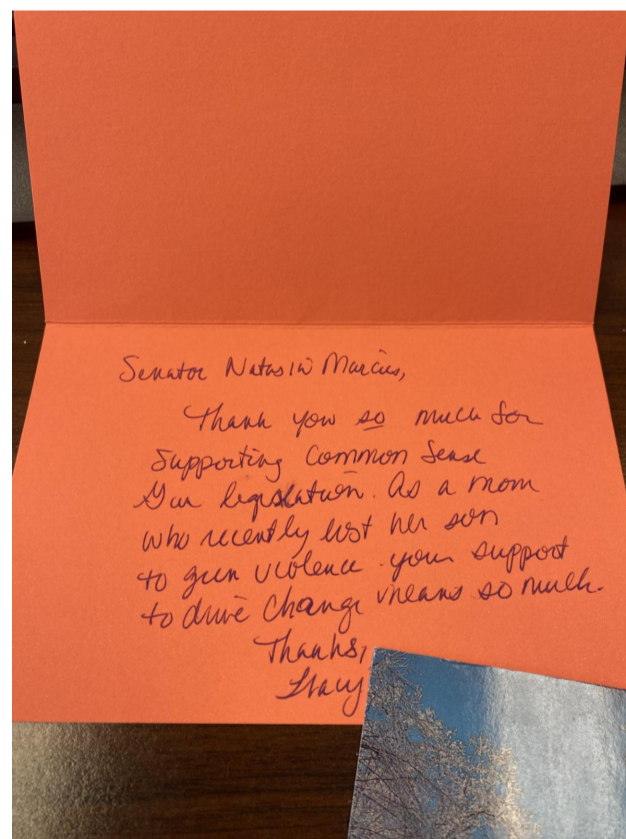 Senator Natasia Marcus,
Thank you so much for
supporting Common Sense
Gun legislation. As a mom
who recently lost her son
to gun violence your support
to drive change means so much.
Thanks,
Stacy